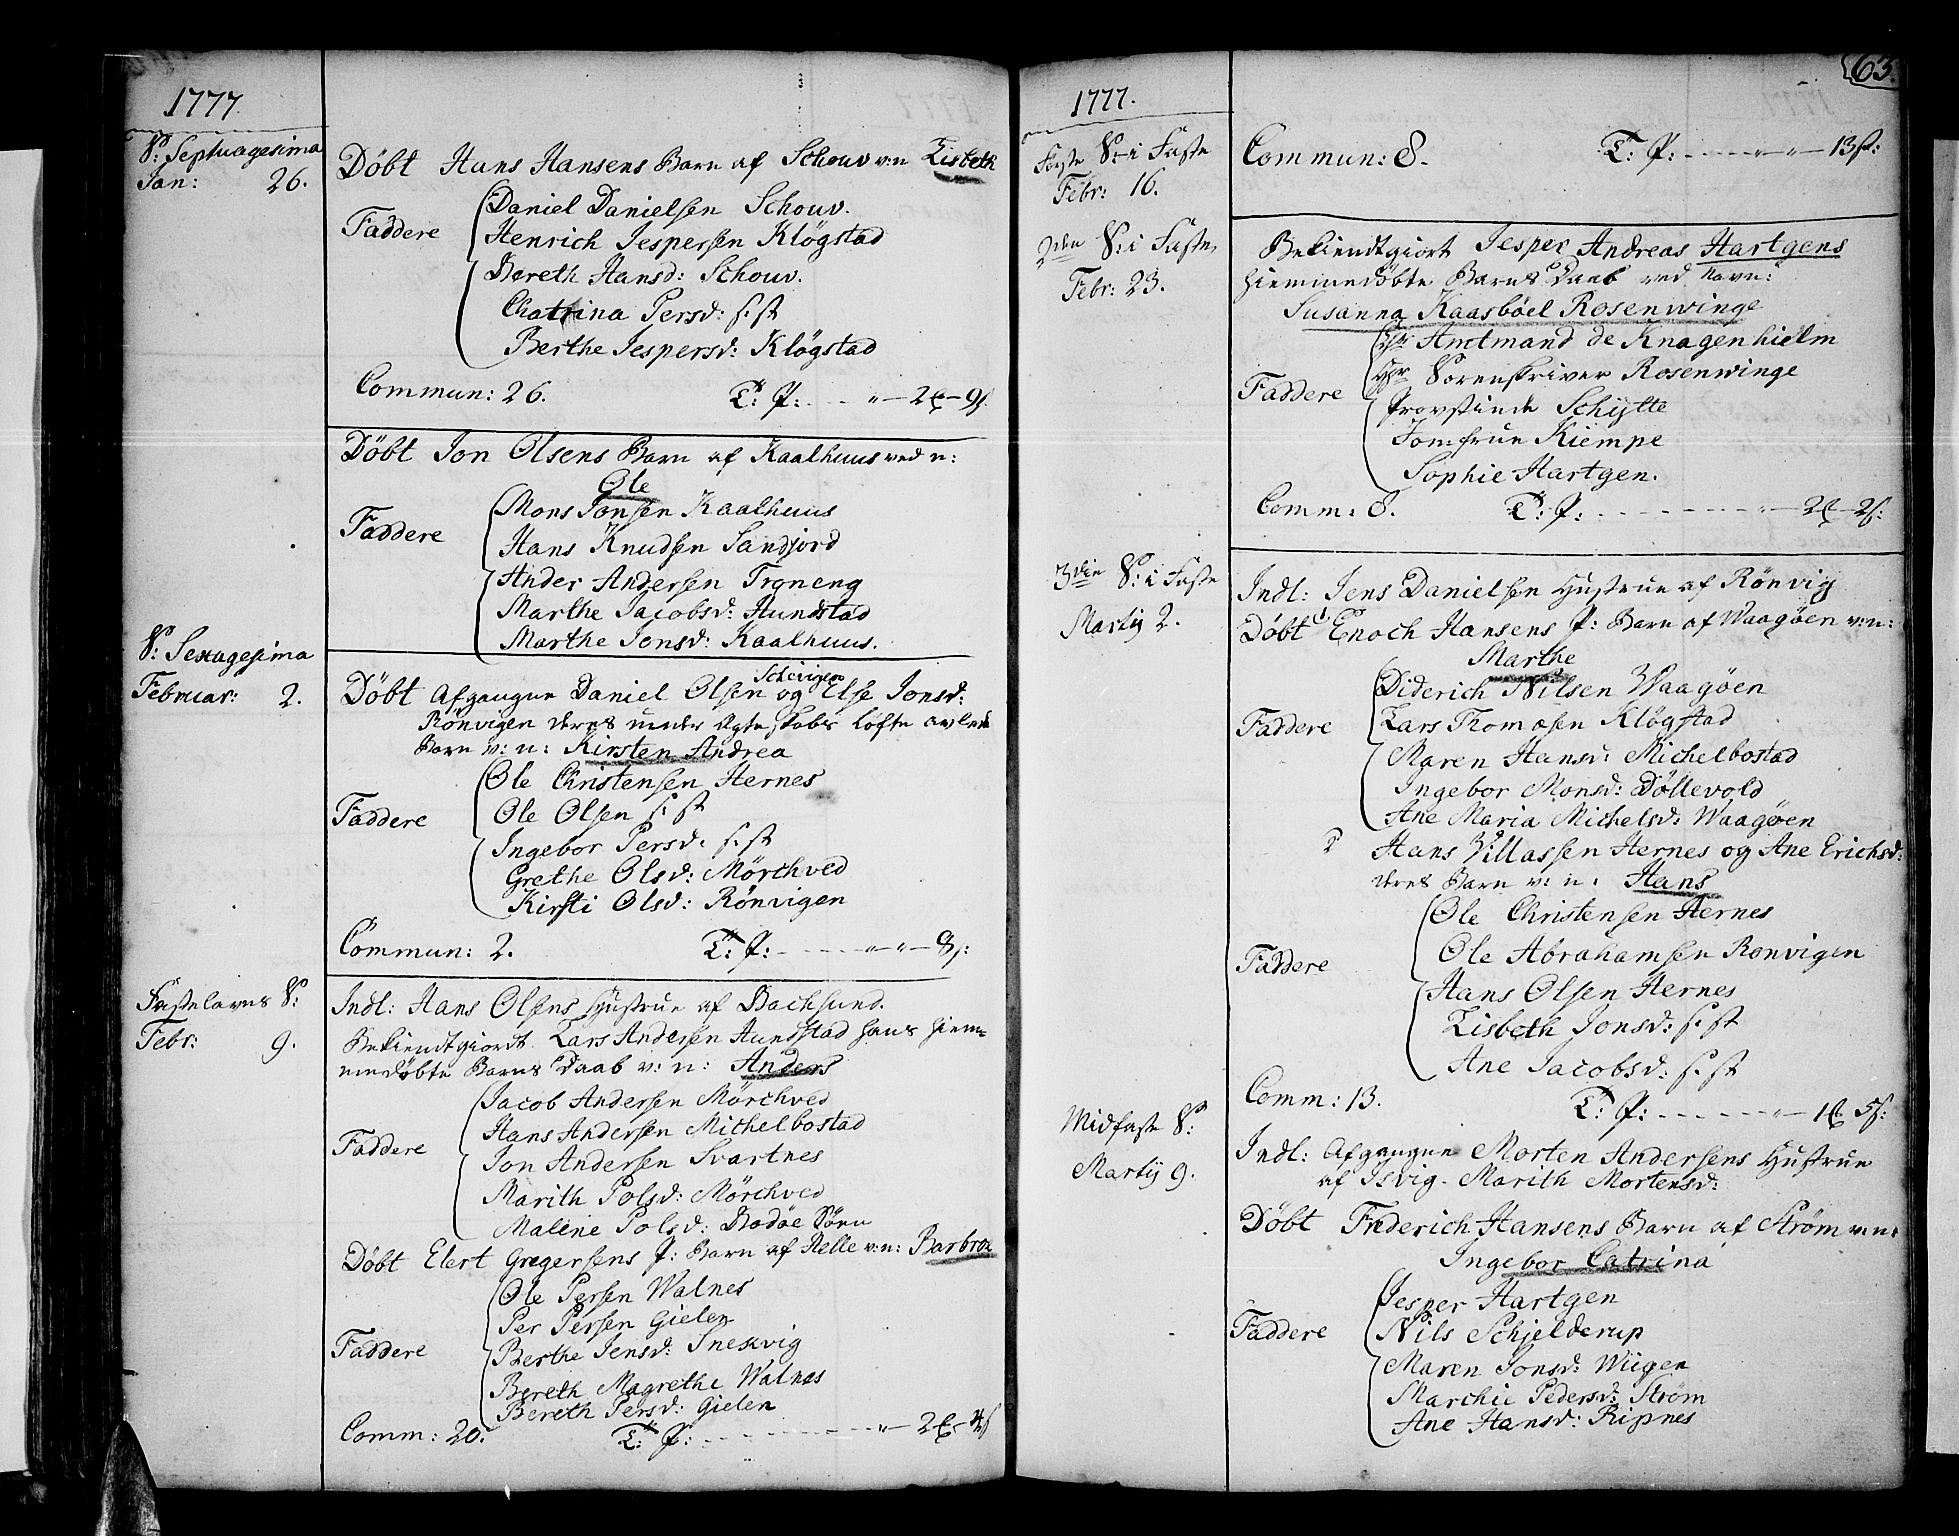 1777.
S: Septuagesima
Jan: 26.
Döbt Hans Hansens Barn af Schouv v:n Lisbeth
Faddere
Daniel Danielsen Schouv.
Henrich Jespersen Klögstad
Bereth Hansd: Schouv.
Chatrina Persd: s: st
Berthe Jespersd: Klögstad
Commun: 26. T: P: - - - " - 2 - 9 s.
Döbt Jon Olsens Barn af Kaalhuus ved n:
Ole
Faddere
Mons Jonsen Kaalhuus
Hans Knudsen Sandjord
Ander Andersen Troneng
Marthe Jacobsd: Hundstad
Marthe Jonsd: Kaalhuus.
S: Sexagesima
Februar: 2.
Döbt Afgangne Daniel Olsen og Else Jonsd:
Rönvigen deres under Ægteskabs Löfte avlede
Barn v: n: Kirsten Andrea
Faddere
Ole Christensen Hernes
Ole Olsen s: st
Ingebor Persd: s: st
Grethe Olsd: Mörchved
Kirsti Olsd: Rönvigen
Commun: 2. T: P: - - - " - " - 8 s:
Fastelavns S:
Febr: 9.
Indl: Hans Olsens Hustrue af Bachsund.
Bekiendtgiordt Lars Andersen Hundstad hans hiem-
medøbte Barns Daab v: n: Anders
Faddere
Jacob Andersen Mörchved
Hans Andersen Michelbostad
Jon Andersen Svartnes
Marith Polsd: Mörchved
Malene Polsd: Bodöe
Döbt Elert Gregersens P: Barn af Helle v:n: Barbroe
Faddere
Ole Persen Walnes
Per Persen Gielen
Berthe Jensd: Snekvig
Bereth Magrethe Walnes
Bereth Persd: Gielen
Comm: 20. T: P: - - - " - 2 - 4 s
63.
1777.
Første S: i Faste
Febr: 16.
Commun: 8. T: P: - - - " - " - 13 s:
2den S: i Faste
Febr: 23.
Bekiendtgiort Jesper Andreas Hartgens
hiemmedøbte Barns Daab ved Navn:
Susanna Kaasböel Rosenwinge
Faddere
Hr Amtmand de Knagenhielm
Hr Sorenskriver Rosenwinge
Provstinde Schytte
Jomfrue Kiempe
Sophie Hartgen.
Comm: 8. T: P: - - - " - 2 - 2 s:
3die S: i Faste
Martij 2.
Indl: Jens Danielsen Hustrue af Rönvig
Döbt Enoch Hansens P: Barn af Waagöen v:n:
Marthe
Faddere
Diderich Nilsen Waagöen
Lars Thomæsen Klögstad
Maren Hansd: Michelbostad
Ingebor Monsd: Döllevold
Ane Maria Michelsd: Waagøen
Hans Villassen Hernes og Ane Erichsd:
deres Barn v: n: Hans
Faddere
Ole Christensen Hernes
Ole Abrahamsen Ronvigen
Hans Olsen Hernes
Lisbeth Jonsd: s: st
Ane Jacobsd: s: st
Comm: 13. T: P: - - - " - 1 5 s:
Midfaste S:
Martij 9.
Indl: Afgangne Morten Andersens Hustrue
af Isvig - Marith Mortensd:
Döbt Friderich Hansens Barn af Strøm v:n:
Ingebor Catrina
Faddere
Jesper Hartgen
Nils Schjelderup
Maren Jonsd: Wiigen
Marchie Pedersd: Strøm
Ane Hansd: Ripnes